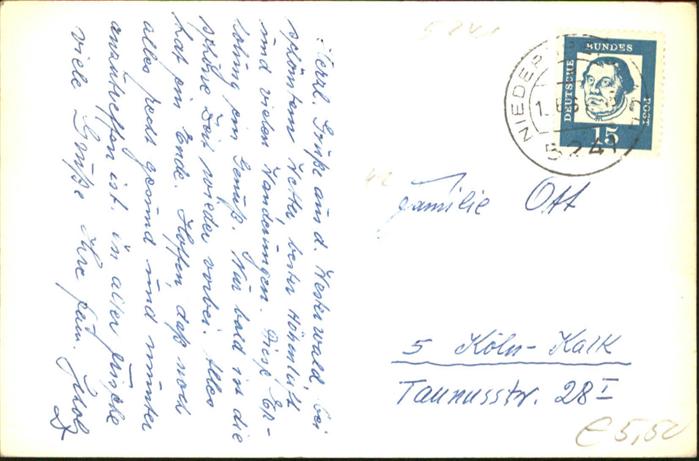 Herzl. Grüße aus d. Westerwald, bei
schönstem Wetter, bester Höhenluft
und vielen Wanderungen. Diese Er-
holung ein Genuß. Nur bald ist die
schöne Zeit wieder vorbei. Alles
hat ein Ende. Hoffen, daß noch
alles recht gesund und munter
anzutreffen ist. In alter Frische
viele Grüße Ihre Fam.
5241
DEUTSCHE BUNDES POST
15
NIEDER
5241
Familie Ott
5 Köln-Kalk
Taunusstr. 28 I
€ 5,50